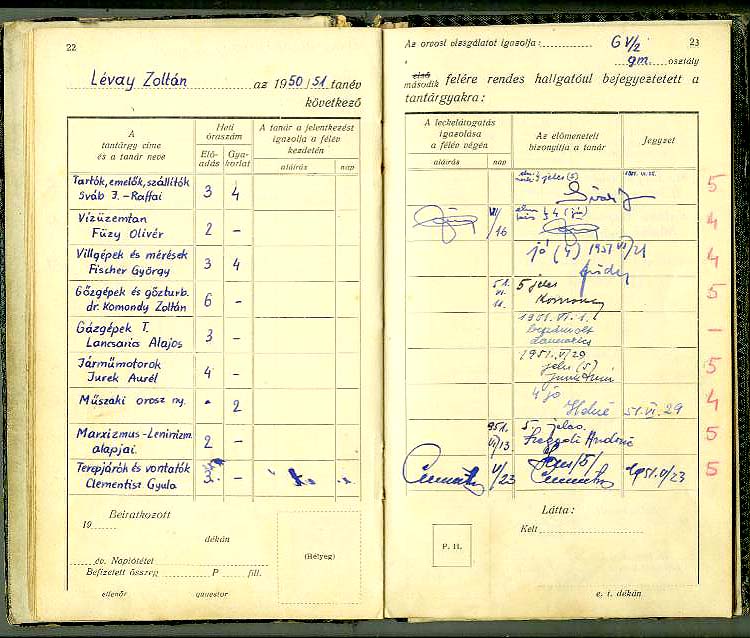 22
Lévay Zoltán az 1950/51 tanév
következő
A
tantárgy címe
és a tanár neve
Heti
óraszám
Elő-
adás
Gya-
korlat
A tanár a jelentkezést
igazolja a félév
kezdetén
aláírás
nap
Tartók, emelők, szállítók
Sváb J. - Raffai
3 4
Vízüzemtan
Füzy Olivér
2 -
Villgépek és mérések
Fischer György
3 4
Gőzgépek és gőzturb.
dr. Komondy Zoltán
6 -
Gázgépek T.
Lancsarics Alajos
3 -
Járműmotorok
Jurek Aurél
4 -
Műszaki orosz ny.
- 2
Marxizmus-Leninizm.
alapjai.
2 -
Terepjárók és vontatók
Clementisz Gyula
3. -
Beiratkozott
19
dékán
év. Naplótétel
Befizetett összeg P fill.
ellenőr quaestor
(Bélyeg)
Az orvosi vizsgálatot igazolja: G V/2 23
gm. osztály
első
második felére rendes hallgatóul bejegyeztetett a
tantárgyakra:
A leckelátogatás
igazolása
a félév végén
aláírás
nap
Az előmenetelt
bizonyítja a tanár
Jegyzet
jeles (5)
5
VI/16
4 (jó)
4
jó (4) 1951 VI/21
4
51.
VI.
5 jeles
Komondy
5
1951. VI. 1.
-
1951. VI/29
jeles (5)
5
4 jó
51. VI. 29
4
951.
VI/13
5. jeles.
5
V/23
Jeles/5/
1951. V/23
5
Látta:
Kelt
P. H.
e. i. dékán